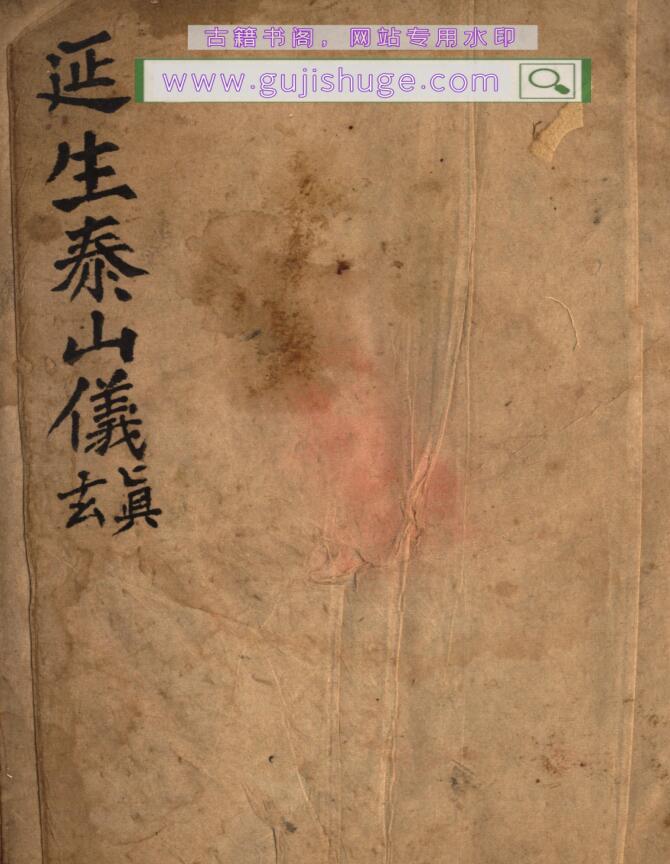 古籍书阁，网站专用水印
www.gujishuge.com
延生泰山儀
真玄